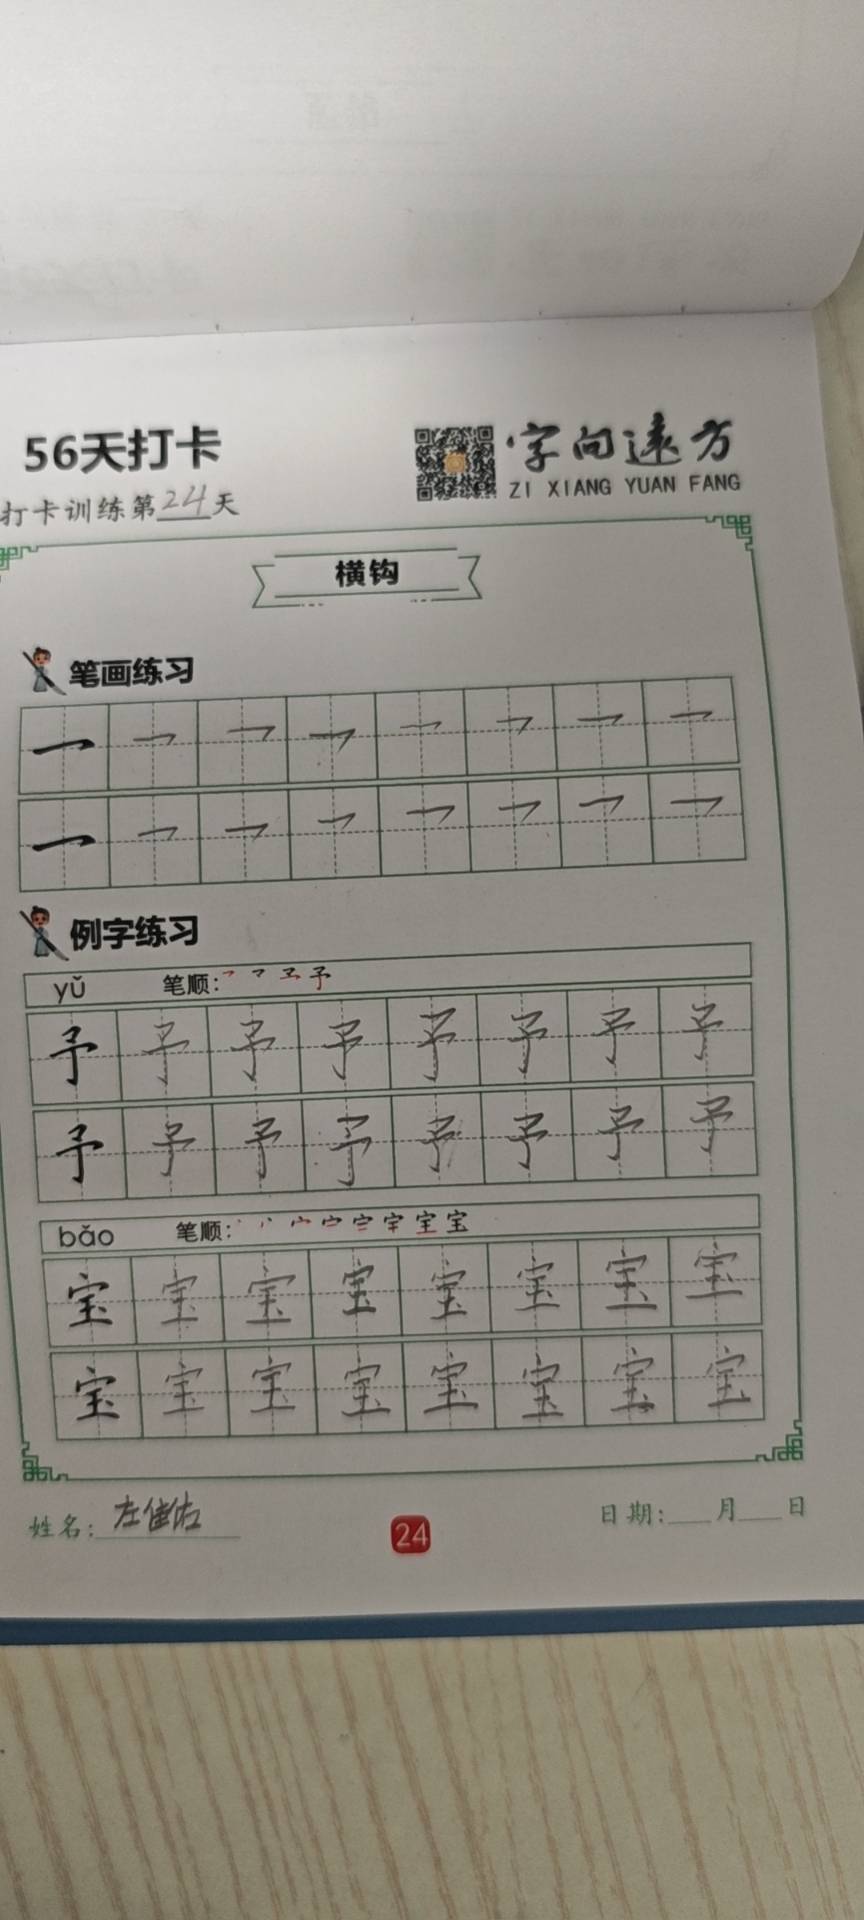 56天打卡
字向远方
ZI XIANG YUAN FANG
打卡训练第24天
横钩
笔画练习
例字练习
yǔ 笔顺:
予 予 予 予 予 予 予 予
予 予 予 予 予 予 予 予
bǎo 笔顺:
宝 宝 宝 宝 宝 宝 宝 宝
宝 宝 宝 宝 宝 宝 宝 宝
姓名:左佳佑
24
日期:___月___日